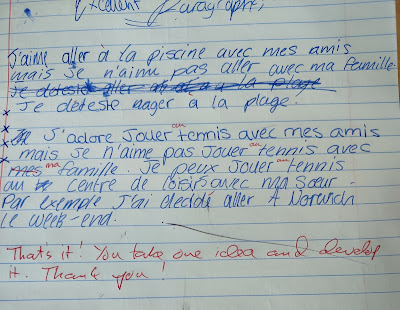 Excellent Paragraph!
J'aime aller à la piscine avec mes amis
mais je n'aime pas aller avec ma famille.
Je deteste aller à la plage
Je deteste nager a la plage.
J'adore Jouer au tennis avec mes amis
mais je n'aime pas Jouer au tennis avec
mes ma famille. Je peux Jouer au tennis
au centre de loisirs avec ma Sœur.
Par exemple J'ai decidé aller A Norwich
le week-end.
That's it! You take one idea and develop
it. Thank you!